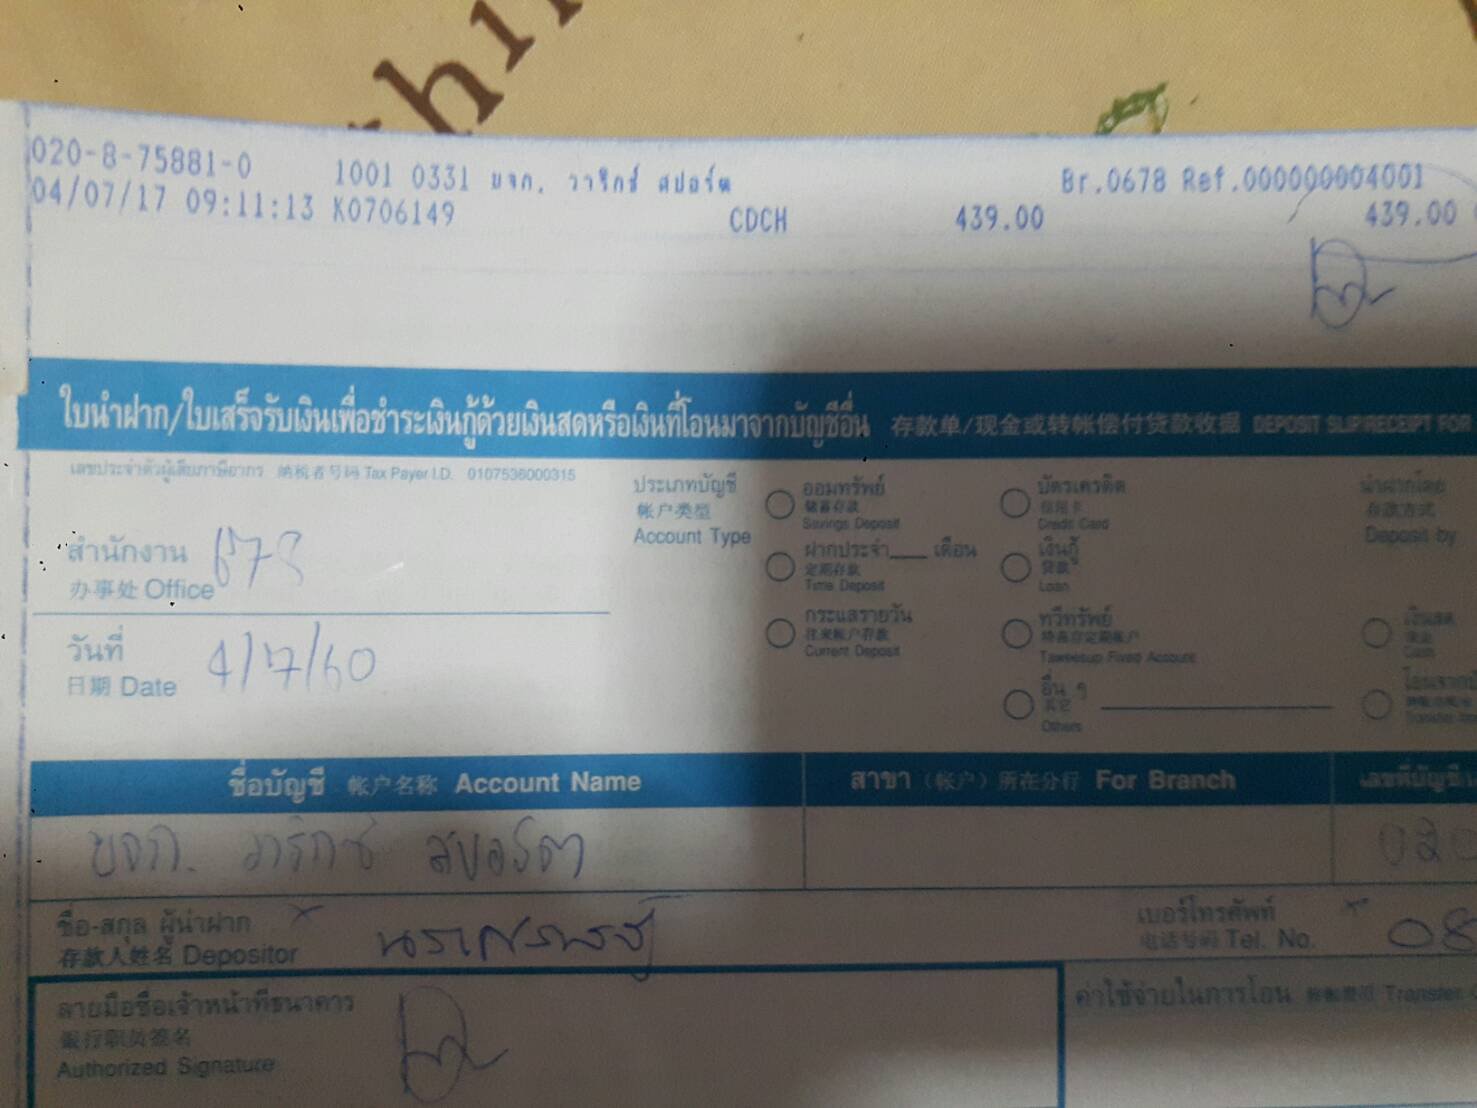 hi
020-8-75881-0 1001 0331 บจก. วาริกซ์ สปอร์ต Br.0678 Ref.000000004001
04/07/17 09:11:13 K0706149 CDCH 439.00 439.00
ใบนำฝาก/ใบเสร็จรับเงินเพื่อชำระเงินกู้ด้วยเงินสดหรือเงินที่โอนมาจากบัญชีอื่น 存款单/现金或转帐偿付贷款收据 DEPOSIT SLIP/RECEIPT FOR
เลขประจำตัวผู้เสียภาษีอากร 纳税者号码 Tax Payer I.D. 0107536000315
สำนักงาน 678
办事处 Office
วันที่ 4/7/60
日期 Date
ประเภทบัญชี
帐户类型
Account Type
ออมทรัพย์
储蓄存款
Savings Deposit
ฝากประจำ____ เดือน
定期存款
Time Deposit
กระแสรายวัน
往来帐户存款
Current Deposit
บัตรเครดิต
信用卡
Credit Card
เงินกู้
贷款
Loan
ทวีทรัพย์
Taweesup Fixed Account
อื่น ๆ
其它
Others
นำฝากโดย
存款方式
Deposit by
เงินสด
现金
Cash
ชื่อบัญชี 帐户名称 Account Name สาขา (帐户) 所在分行 For Branch เลขที่บัญชี
บจก. วาริกซ์ สปอร์ต 020
ชื่อ-สกุล ผู้นำฝาก
存款人姓名 Depositor
เบอร์โทรศัพท์
电话号码 Tel. No. 08
ลายมือชื่อเจ้าหน้าที่ธนาคาร
银行职员签名
Authorized Signature
ค่าใช้จ่ายในการโอน Transfer